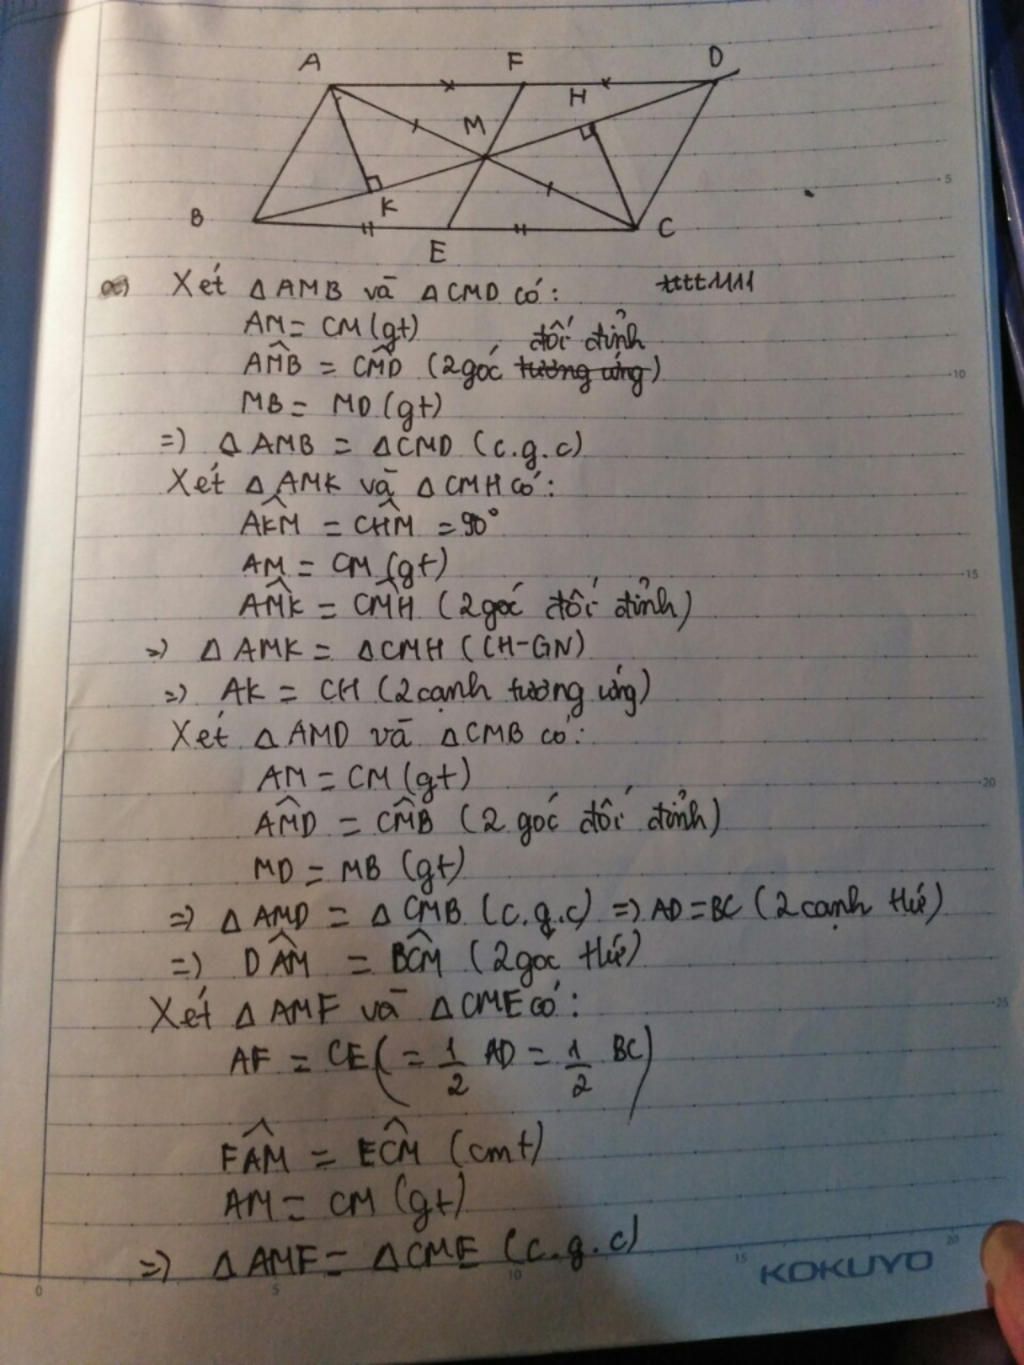 A F D
H
M
K
B C
E
a) Xét Δ AMB và Δ CMD có:
AM = CM (gt)
đối đỉnh
AM̂B = CM̂D (2 góc tương ứng)
MB = MD (gt)
=) Δ AMB = Δ CMD (c.g.c)
Xét Δ AMK và Δ CMH có:
AK̂M = CĤM = 90°
AM = CM (gt)
AM̂K = CM̂H (2 góc đối đỉnh)
=) Δ AMK = Δ CMH (CH-GN)
=) AK = CH (2 cạnh tương ứng)
Xét Δ AMD và Δ CMB có:
AM = CM (gt)
AM̂D = CM̂B (2 góc đối đỉnh)
MD = MB (gt)
=) Δ AMD = Δ CMB (c.g.c) =) AD = BC (2 cạnh tứ)
=) DÂM = BĈM (2 góc tứ)
Xét Δ AMF và Δ CME có:
AF = CE (= 1/2 AD = 1/2 BC)
FÂM = EĈM (cmt)
AM = CM (gt)
=) Δ AMF = Δ CME (c.g.c)
5
10
15
20
25
0 5 10 15 20
KOKUYO